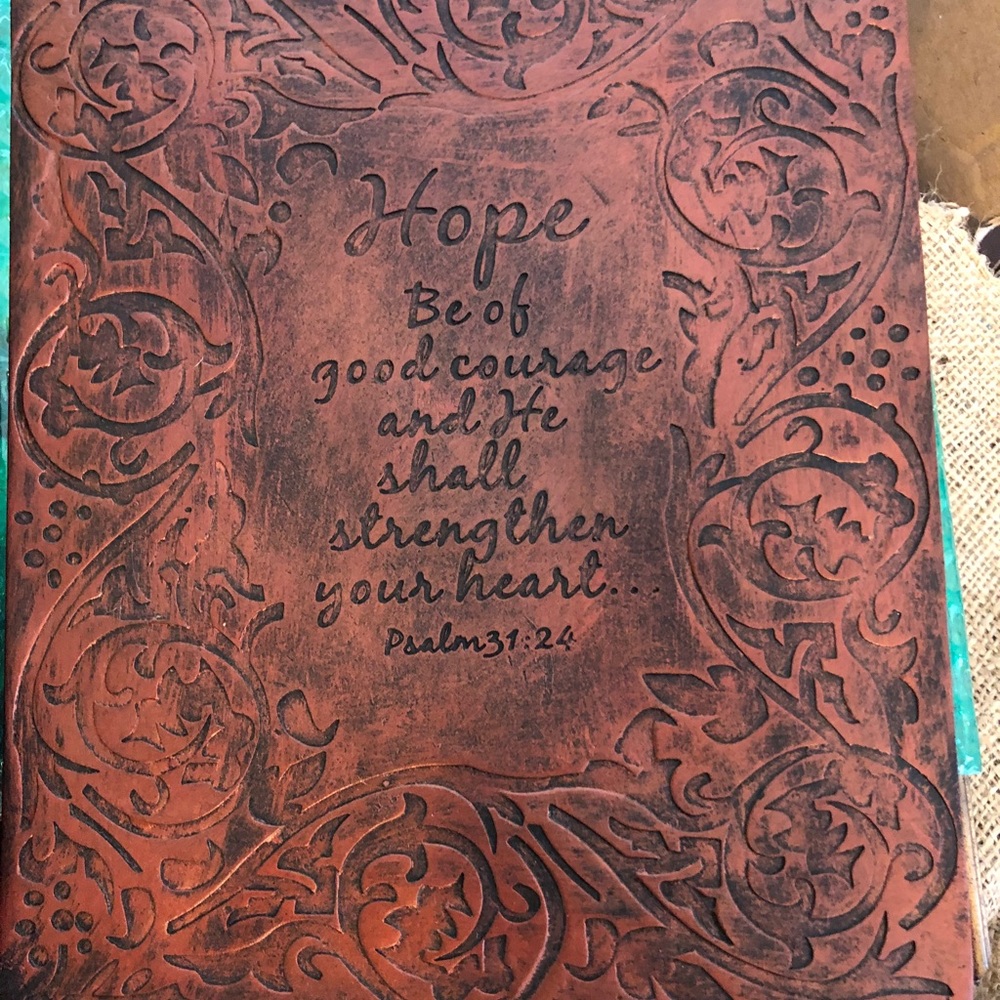 Hope
Be of
good courage
and He
shall
strengthen
your heart...
Psalm31:24